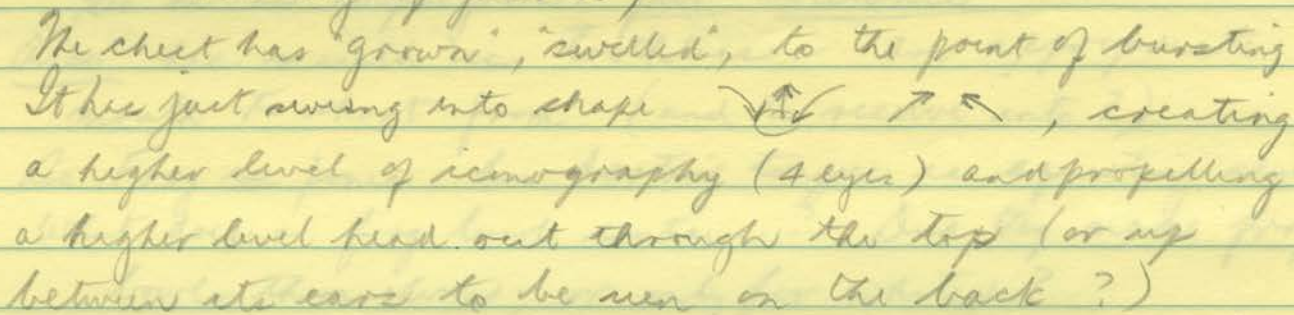 The chest has "grown", "swelled", to the point of bursting
It has just swung into shape , creating
a higher level of iconography (4 eyes) and propelling
a higher level head out through the top (or up
between its ears to be seen on the back?)